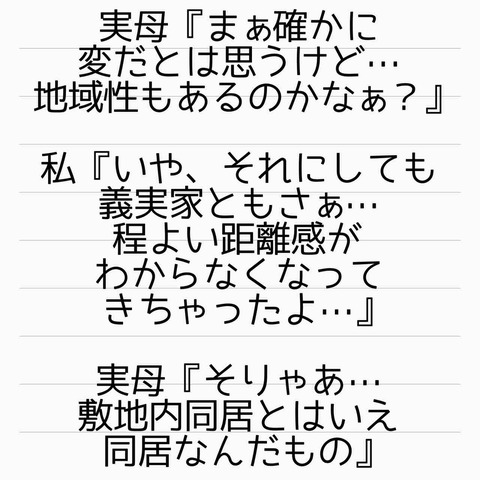 実母『まぁ確かに
変だとは思うけど…
地域性もあるのかなぁ？』
私『いや、それにしても
義実家ともさぁ…
程よい距離感が
わからなくなって
きちゃったよ…』
実母『そりゃあ…
敷地内同居とはいえ
同居なんだもの』